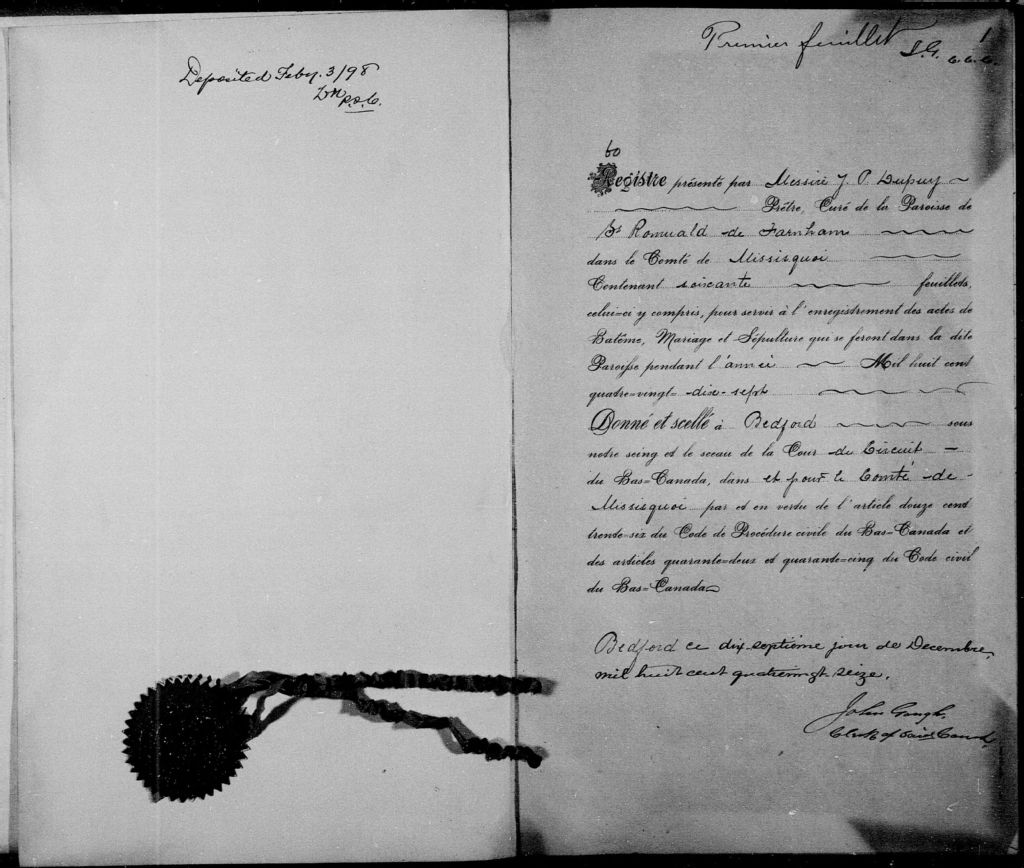 Deposited Feby. 3/98
P.S.C.
Premier feuillet 1
J.G. C.C.C.
60
Registre présenté par Messire J. P. Dupuy
Prêtre, Curé de la Paroisse de
St Romuald de Farnham
dans le Comté de Missisquoi
Contenant soixante feuillets,
celui=ci y compris, pour servir à l'enregistrement des actes de
Batême, Mariage et Sépulture qui se feront dans la dite
Paroisse pendant l'année Mil huit cent
quatre=vingt=dix-sept
Donné et scellé à Bedford sous
notre seing et le sceau de la Cour de Circuit
du Bas=Canada, dans et pour le Comté de
Missisquoi par et en vertu de l'article douze cent
trente=six du Code de Procédure civile du Bas=Canada et
des articles quarante=deux et quarante=cinq du Code civil
du Bas=Canada
Bedford ce dix-septième jour de Decembre,
mil huit cent quatrevingt seize.
John Gough.
Clerk of said Court